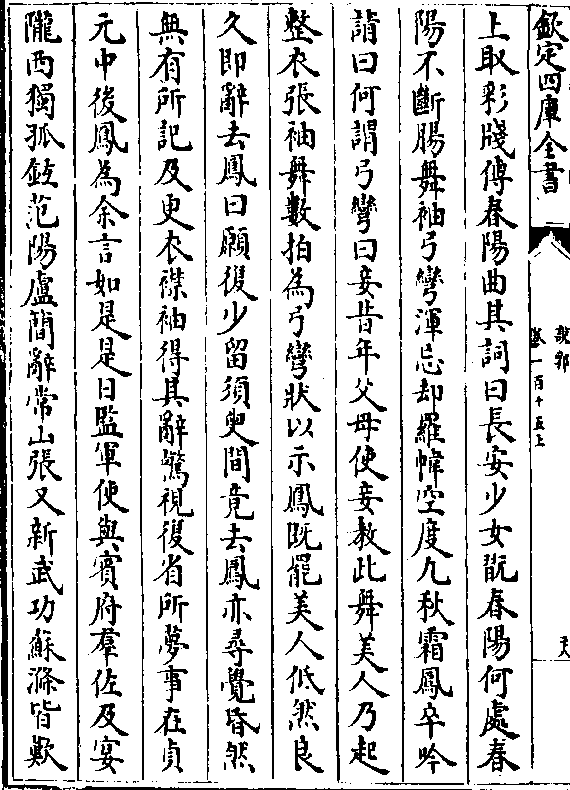 欽定四庫全書
說郛
卷一百十五上
上取彩牋傳春陽曲其詞曰長安少女翫春陽何處春
陽不斷腸舞袖弓彎渾忘却羅幃空度九秋霜鳳卒吟
請曰何謂弓彎曰妾昔年父母使妾教此舞美人乃起
整衣張袖舞數拍為弓彎狀以示鳳既罷美人低然良
久即辭去鳳曰願復少留須臾間竟去鳳亦尋覺昏然
無有所記及更衣襟袖得其辭驚視復省所夢事在貞
元中後鳳為余言如是是日監軍使與賓府羣佐及宴
隴西獨孤鉉范陽盧簡辭常山張又新武功蘇滌皆歎